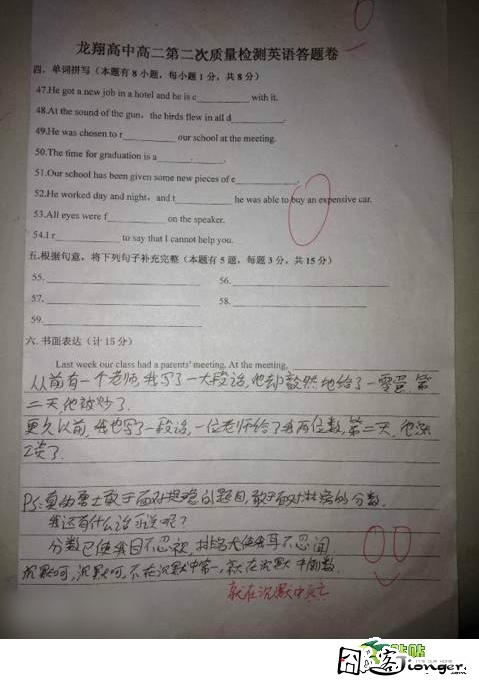 龙翔高中高二第二次质量检测英语答题卷
四、单词拼写（本题有8小题，每小题1分，共8分）
47.He got a new job in a hotel and he is c________ with it.
48.At the sound of the gun, the birds flew in all d________
49.He was chosen to r________ our school at the meeting.
50.The time for graduation is a________.
51.Our school has been given some new pieces of e________.
52.He worked day and night, and t________ he was able to buy an expensive car.
53.All eyes were f________ on the speaker.
54.I r________ to say that I cannot help you.
五.根据句意，将下列句子补充完整（本题有5题，每题3分，共15分）
55. ________ 56. ________
57. ________ 58. ________
59. ________
六. 书面表达（计15分）
Last week our class had a parents' meeting. At the meeting,
从前有一个老师,我写了一大段话,他却毅然地给了一零蛋.第
二天他被炒了.
更久以前,我也写了一段话,一位老师给了我两位数,第二天,他涨
工资了.
PS:真的勇士敢于面对坑的题目,敢于面对淋漓的分数.
我还有什么话可说呢?
分数已使我目不忍视,排名尤使我耳不忍闻
沉默呵,沉默呵,不在沉默中第一,就在沉默中倒数.
就在沉默中灭亡
囧客
ionger.com